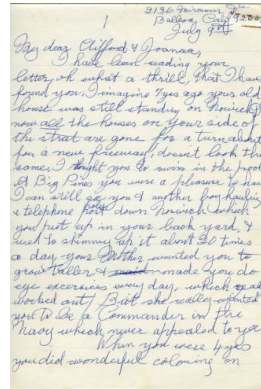 2136 Miramar
Balboa, Calif 9200
July 9th
1
My dear Clifford & Joanna,
I have been reading your
letter, oh what a thrill, that I have
found you. I imagine 4 yes ago your old
house was still standing on Norwich
now all the houses on your side of
the street are gone for a turn about
for a new freeway, doesn't look the
same. I taught you to swim in the pool
at Big Pines you were a pleasure to have
I can still see you & another boy hauling
a telephone post down Norwich which
you put up in your back yard, &
used to shimmy up it about 20 times
a day your Mother wanted you to
grow taller & made you do
eye excersises every day, which
worked out! But she really wanted
you to be a Commander in the
Navy which never appealed to you
When you were 4 yrs
you did wonderful coloring on